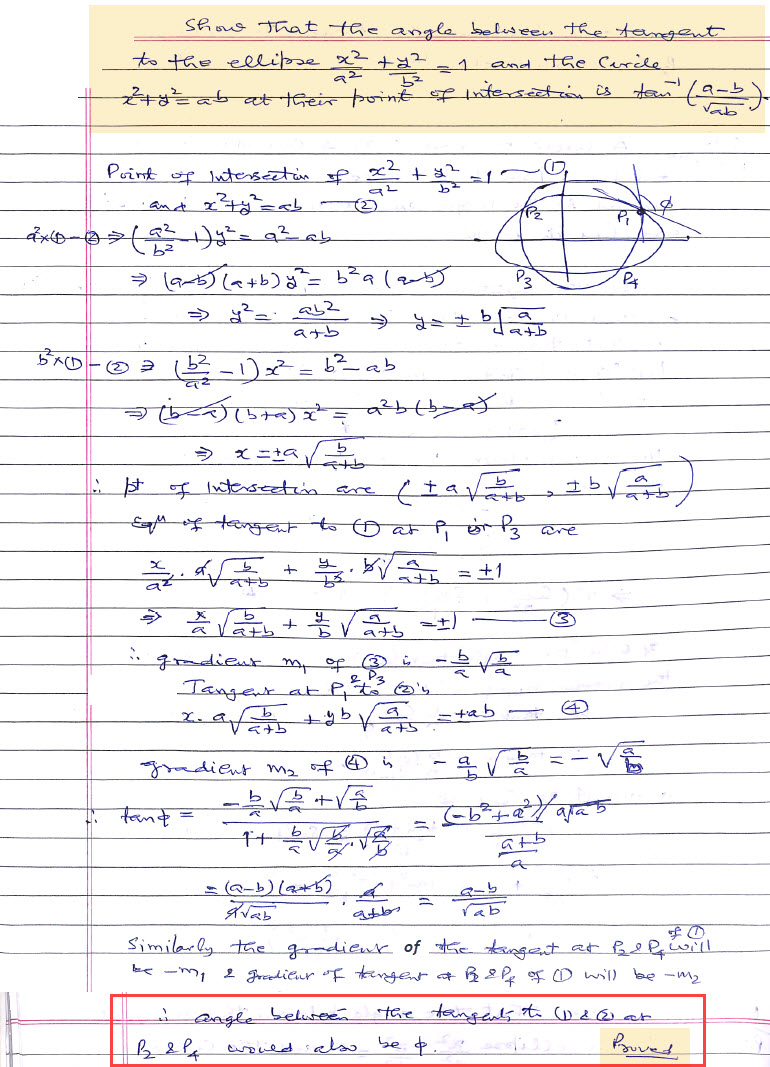 Show that the angle between the tangent
to the ellipse x²/a² + y²/b² = 1 and the Circle
x²+y²=ab at their point of Intersection is tan⁻¹ (a-b/√ab).
Point of Intersectin of x²/a² + y²/b² = 1 — ①
and x²+y²=ab — ②
P₂ P₁ φ
P₃ P₄
a²×① - ② ⇒ (a²/b² - 1) y² = a² - ab
⇒ (a-b)(a+b) y² = b²a (a-b)
⇒ y² = ab²/a+b ⇒ y = ± b √a/a+b
b²×① - ② ⇒ (b²/a² - 1) x² = b² - ab
⇒ (b-a)(b+a) x² = a²b (b-a)
⇒ x = ±a √b/a+b
∴ pt of Intersectin are (±a √b/a+b , ±b √a/a+b)
Eqⁿ of tangent to ① at P₁ or P₃ are
x/a² · a √b/a+b + y/b² · b √a/a+b = ±1
⇒ x/a √b/a+b + y/b √a/a+b = ±1 — ③
∴ gradient m₁ of ③ is - b/a √b/a
Tangent at P₁ & P₃ to ② is
x. a √b/a+b + y b √a/a+b = ±ab — ④
gradient m₂ of ④ is - a/b √b/a = - √a/b
∴ tanφ = (- b/a √b/a + √a/b) / (1 + b/a √b/a . √a/b) = (-b²+a²)/a√ab / (a+b/a)
= (a-b)(a+b)/a√ab . a/a+b = a-b/√ab
Similarly the gradient of the tangent at P₂ & P₄ of ① will
be -m₁ & gradient of tangent at P₂ & P₄ of ① will be -m₂
∴ angle between the tangents to (1) & (2) at
P₂ & P₄ would also be φ. Proved